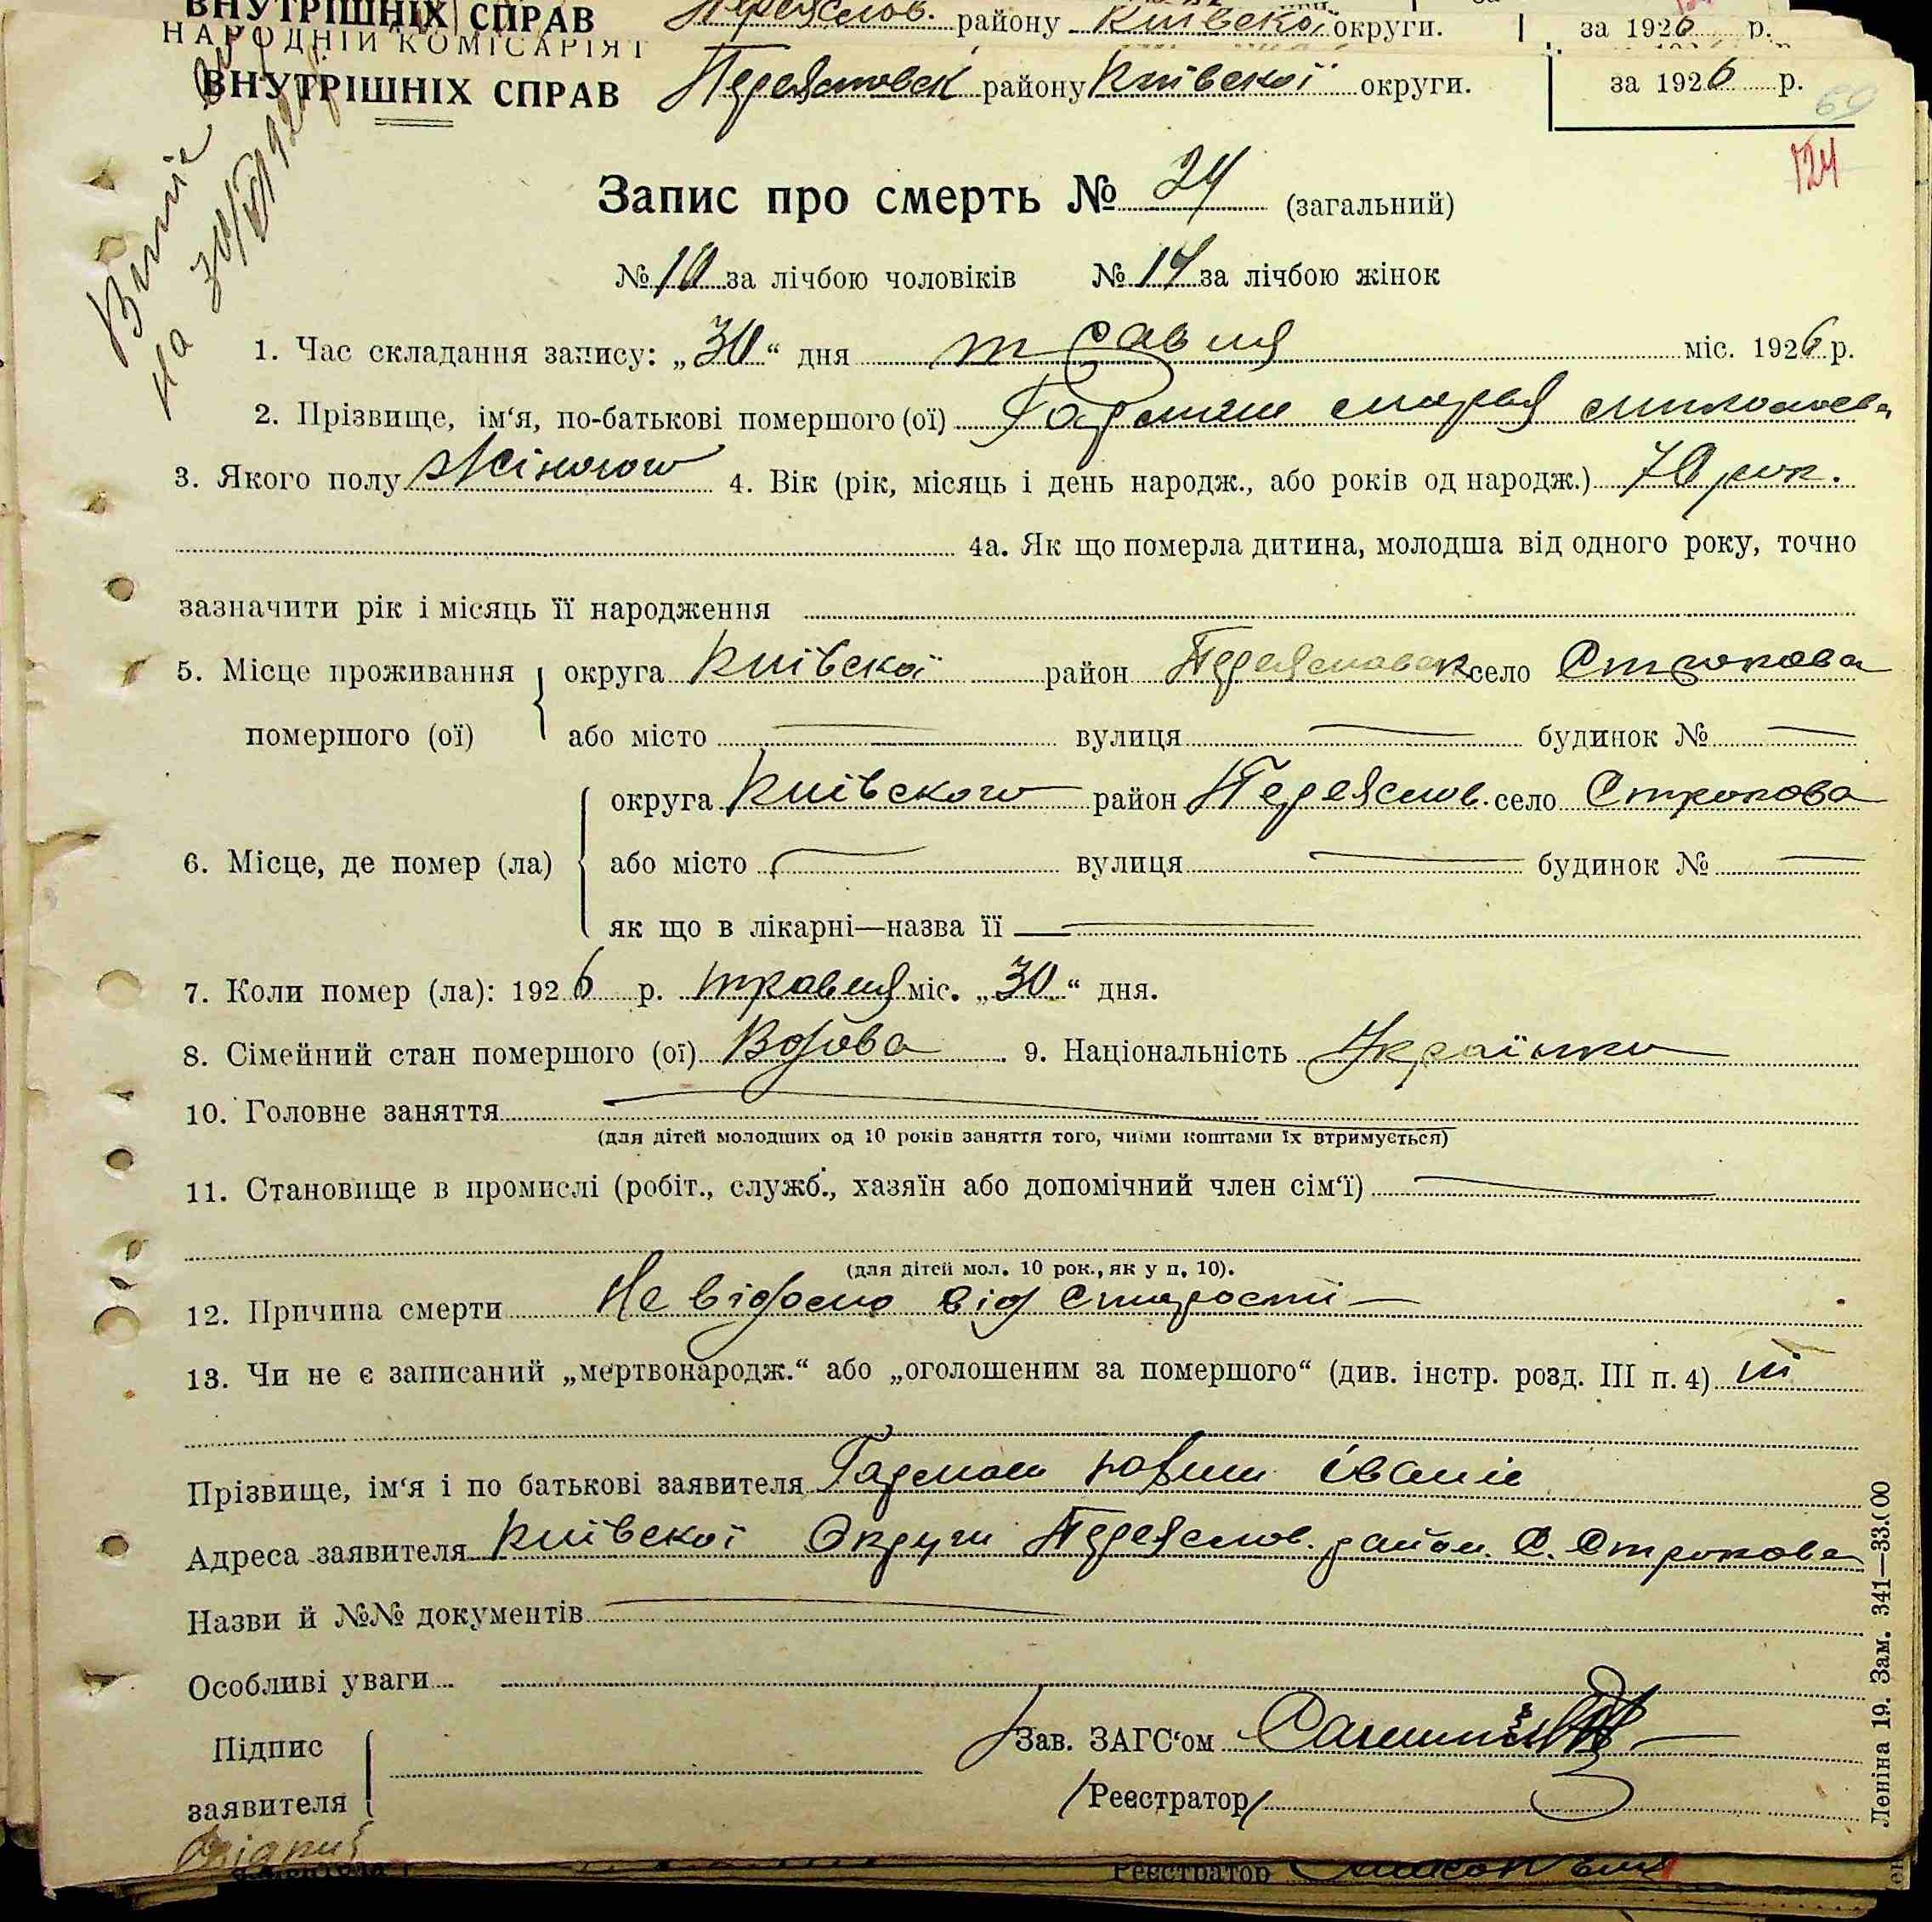 ВНУТРІШНІХ СПРАВ Переяслов. району Київскої округи. за 1926 р.
НАРОДНІЙ КОМІСАРІЯТ
ВНУТРІШНІХ СПРАВ Переяславск району Київскої округи. за 1926 р.
69
124
Запис про смерть № 24 (загальний)
№ 10 за лічбою чоловіків № 14 за лічбою жінок
1. Час складання запису: „30“ дня травня міс. 1926 р.
2. Прізвище, ім‘я, по-батькові помершого (ої)
3. Якого полу 4. Вік (рік, місяць і день народж., або років од народж.) 70 рок.
4а. Як що померла дитина, молодша від одного року, точно
зазначити рік і місяць її народження
5. Місце проживання округа Київскої район Переяславск село Строкова
помершого (ої) або місто вулиця будинок №
округа Київского район Переяслов. село Строкова
6. Місце, де помер (ла) або місто вулиця будинок №
як що в лікарні—назва її
7. Коли помер (ла): 1926 р. травня міс. „30“ дня.
8. Сімейний стан помершого (ої) Вдова 9. Національність Українка
10. Головне заняття
(для дітей молодших од 10 років заняття того, чиїми коштами їх втримується)
11. Становище в промислі (робіт., служб., хазяїн або допомічний член сім‘ї)
(для дітей мол. 10 рок., як у п. 10).
12. Причина смерти Не відомо від старости
13. Чи не є записаний „мертвонародж.“ або „оголошеним за помершого“ (див. інстр. розд. III п. 4) ні
Прізвище, ім‘я і по батькові заявителя
Адреса заявителя Київскої Округи Переяслов. район. С. Строкова
Назви й №№ документів
Особливі уваги
Підпис
заявителя
Зав. ЗАГС‘ом
Реєстратор
Леніна 19. Зам. 341—33.000
Реєстратор